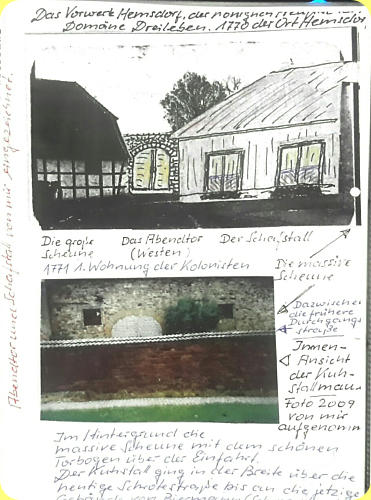 Das Vorwerk Hemsdorf, der
Domäne Dreileben. 1770 der Ort Hemsdorf
Abendtor und Schafstall von mir eingezeichnet.
Die große Scheune
Das Abendtor (Westen)
Der Schafstall
1771 1. Wohnung der Kolonisten
Die massive
Scheune
Dazwischen
die frühere
Durchgangs
straße
Innen-
Ansicht
der Kuh-
stallmauer
Foto 2009
von mir
aufgenomm
Im Hintergrund die
massive Scheune mit dem schönen
Torbogen über der Einfahrt.
Der Kuhstall ging in der Breite über die
heutige Schrotestraße bis an die jetzige